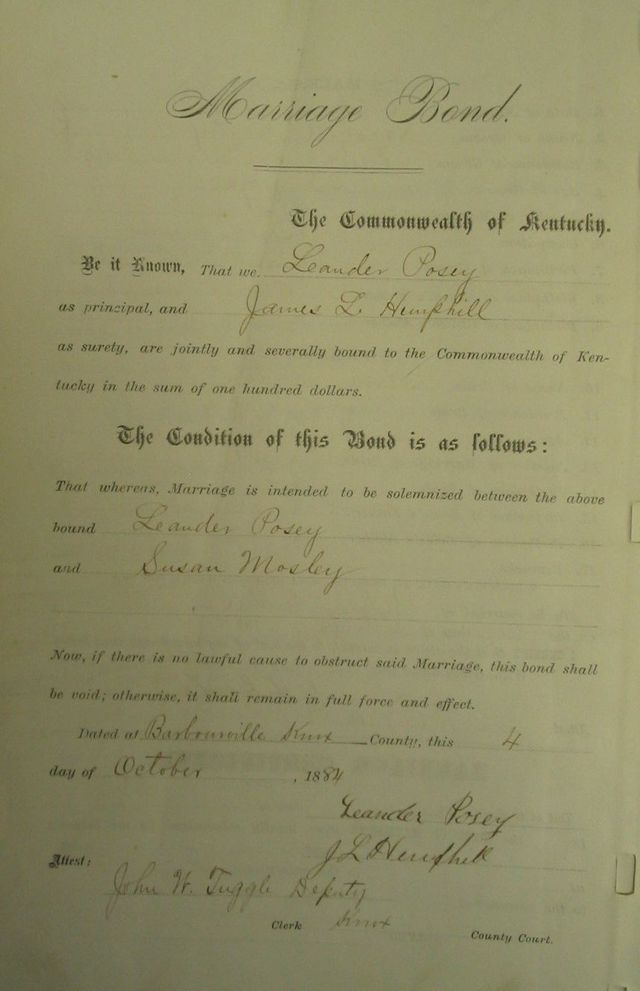 Marriage Bond.
The Commonwealth of Kentucky.
Be it Known, That we, Leander Posey
as principal, and James L. Hemphill
as surety, are jointly and severally bound to the Commonwealth of Ken-
tucky in the sum of one hundred dollars.
The Condition of this Bond is as follows:
That whereas, Marriage is intended to be solemnized between the above
bound Leander Posey
and Susan Mosley
Now, if there is no lawful cause to obstruct said Marriage, this bond shall
be void; otherwise, it shall remain in full force and effect.
Dated at Barbourville Knox County, this 4
day of October, 1884
Leander Posey
J L Hemphill
Attest:
John W. Tuggle Deputy
Clerk Knox County Court.